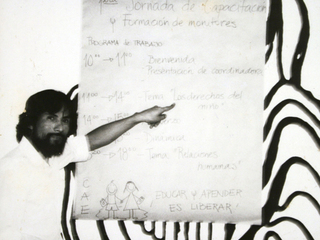 1ra Jornada de Capacitación
y Formación de monitores
PROGRAMA de TRABAJO
10:00 -- 11:00 Bienvenida
Presentación de coordinadores
11:00 -- 14:00 Tema: "Los derechos del
niño"
14:00 -- 15
"Relaciones
Humanas"
C
A
E
EDUCAR Y APRENDER
ES LIBERAR!